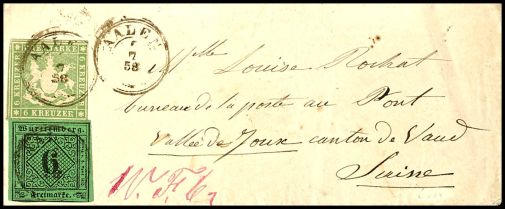 FREIMARKE
6 KREUZER
6 KREUZER
6 KREUZER
AALEN
7
58
AALEN
7
58
Württemberg.
6
Freimarke.
Mlle Louise Rochat
bureau de la poste au Pont
Vallée de Joux canton de Vaud
Suisse
W. F. 6